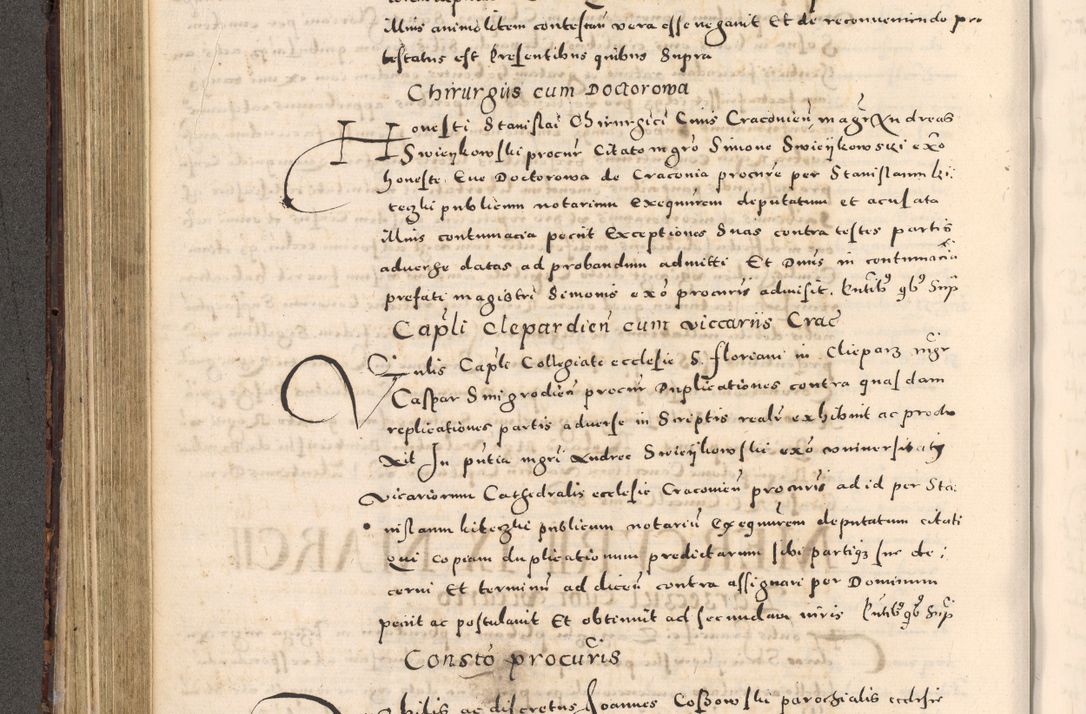 illius animo litem contestan vera esse negavit Et de reconveniendo pro
testatus est Presentibus quibus Supra
Chirurgus cum Doctorowa
Honesti Stanislai Chirurgici Civis Cracovien magr Andreas
Swieykowski procur Citato mgro Simone Swieykowski exo
honeste Eve Doctorowa de Cracovia procure per Stanislaum Ki:
teczki publicum notarium Exequutrem deputatum et acusata
illius contumacia petiit Exceptiones Suas contra testes partis
adverse datas ad probandum admitti Et Dnus in contumacia
prefati magistri Simonis exo procuris admisit. Pntibus qbs Sup
Capli Clepardien cum viccariis Crac
Venlis Capli Collegiate ecclesie S. Floriani in Clieparz mgr
Caspar Smigrodien procur Duplicationes contra quasdam
replicationes partis adverse in Scriptis realr exhibuit ac produ
xit In pntia mgri Andree Swieykowski exo universitatis
Vicariorum Cathedralis ecclesie Cracovien procuris ad id per Sta:
nislaum kiteczki publicum notariu Exequurem deputatum citati
Qui copiam duplicationum predictarum sibi partiqz sue de:
cerni Et terminu ad dicen contra assignari per Dominum
petiit ac postulavit Et obtinuit ad secundam iuris Pntibus qbs Sup
Consto procuris
ac discretus Joannes Coszowski parochialis ecclesie